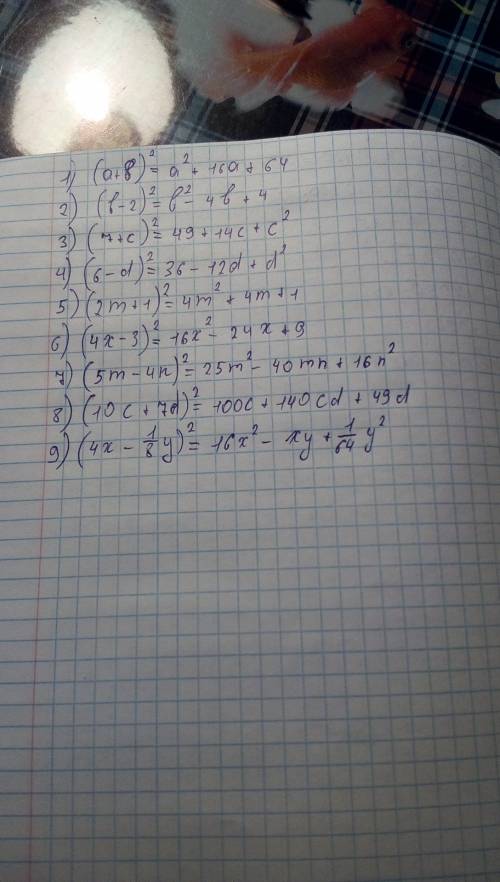 1) (a+8)² = a² + 16a + 64
2) (b-2)² = b² - 4b + 4
3) (7+c)² = 49 + 14c + c²
4) (6-d)² = 36 - 12d + d²
5) (2m+1)² = 4m² + 4m + 1
6) (4x-3)² = 16x² - 24x + 9
7) (5m-4n)² = 25m² - 40mn + 16n²
8) (10c+7d)² = 100c + 140cd + 49d
9) (4x - 1/8 y)² = 16x² - xy + 1/64 y²